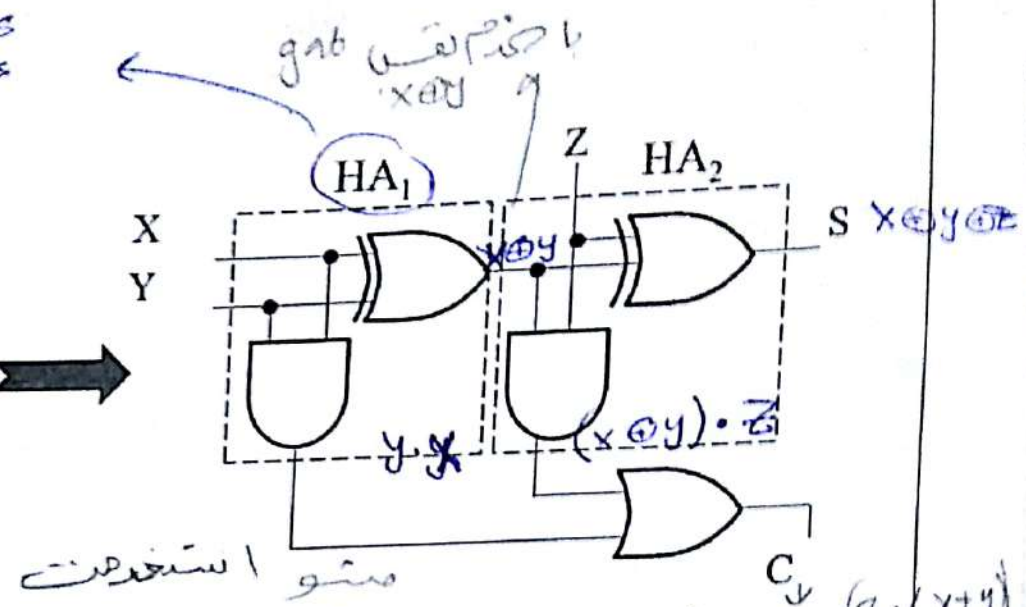 باخذ نفس gate
x⊕y
HA₁
Z
HA₂
X
Y
x⊕y
S x⊕y⊕z
y.x
(x⊕y).Z
C
استخدمت